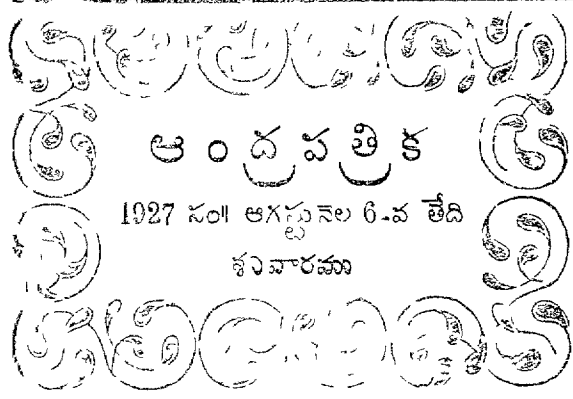 ఆంద్రపత్రిక
1927 సం॥ ఆగస్టునెల 6-వ తేది
శనివారము